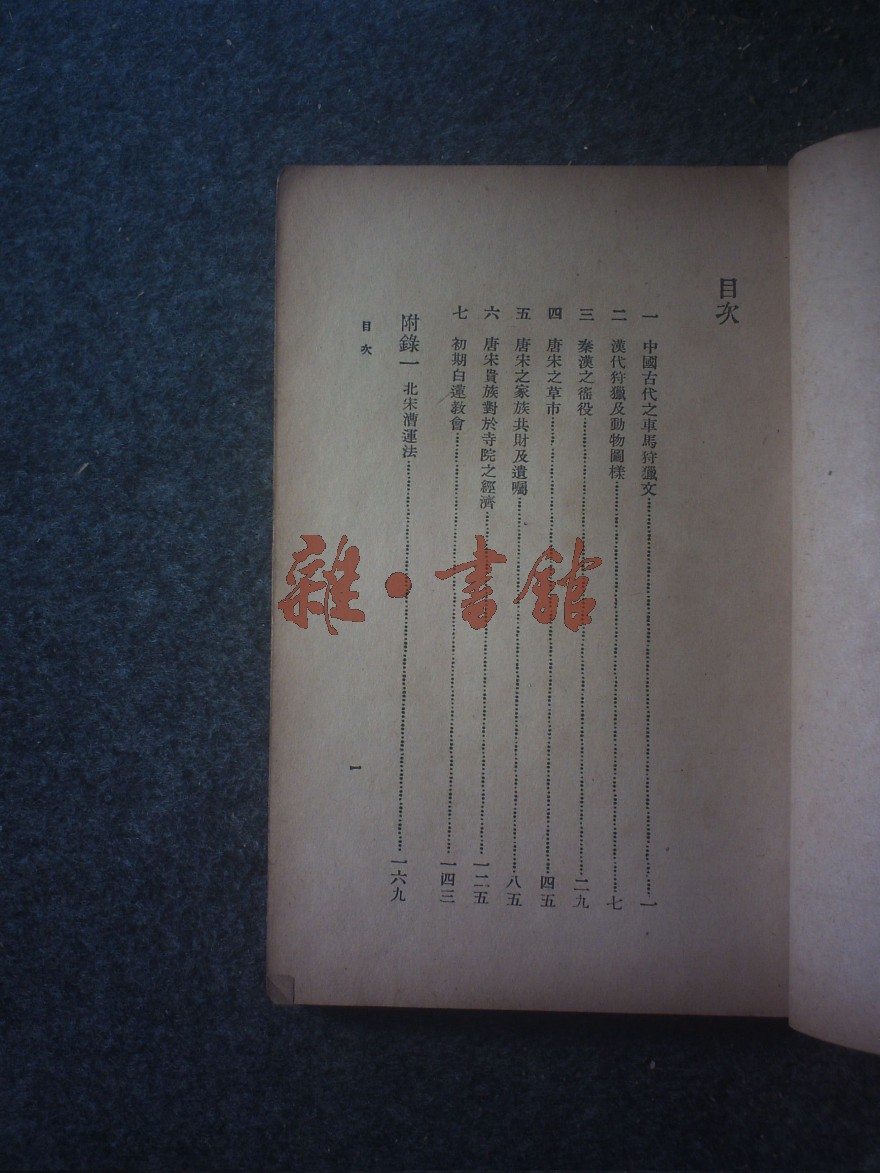 目次
一 中國古代之車馬狩獵文……一
二 漢代狩獵及動物圖樣……七
三 秦漢之徭役……二九
四 唐宋之草市……四五
五 唐宋之家族共財及遺囑……八五
六 唐宋貴族對於寺院之經濟……一二五
七 初期白蓮教會……一四三
附錄一 北宋漕運法……一六九
目次
一
雜·書館